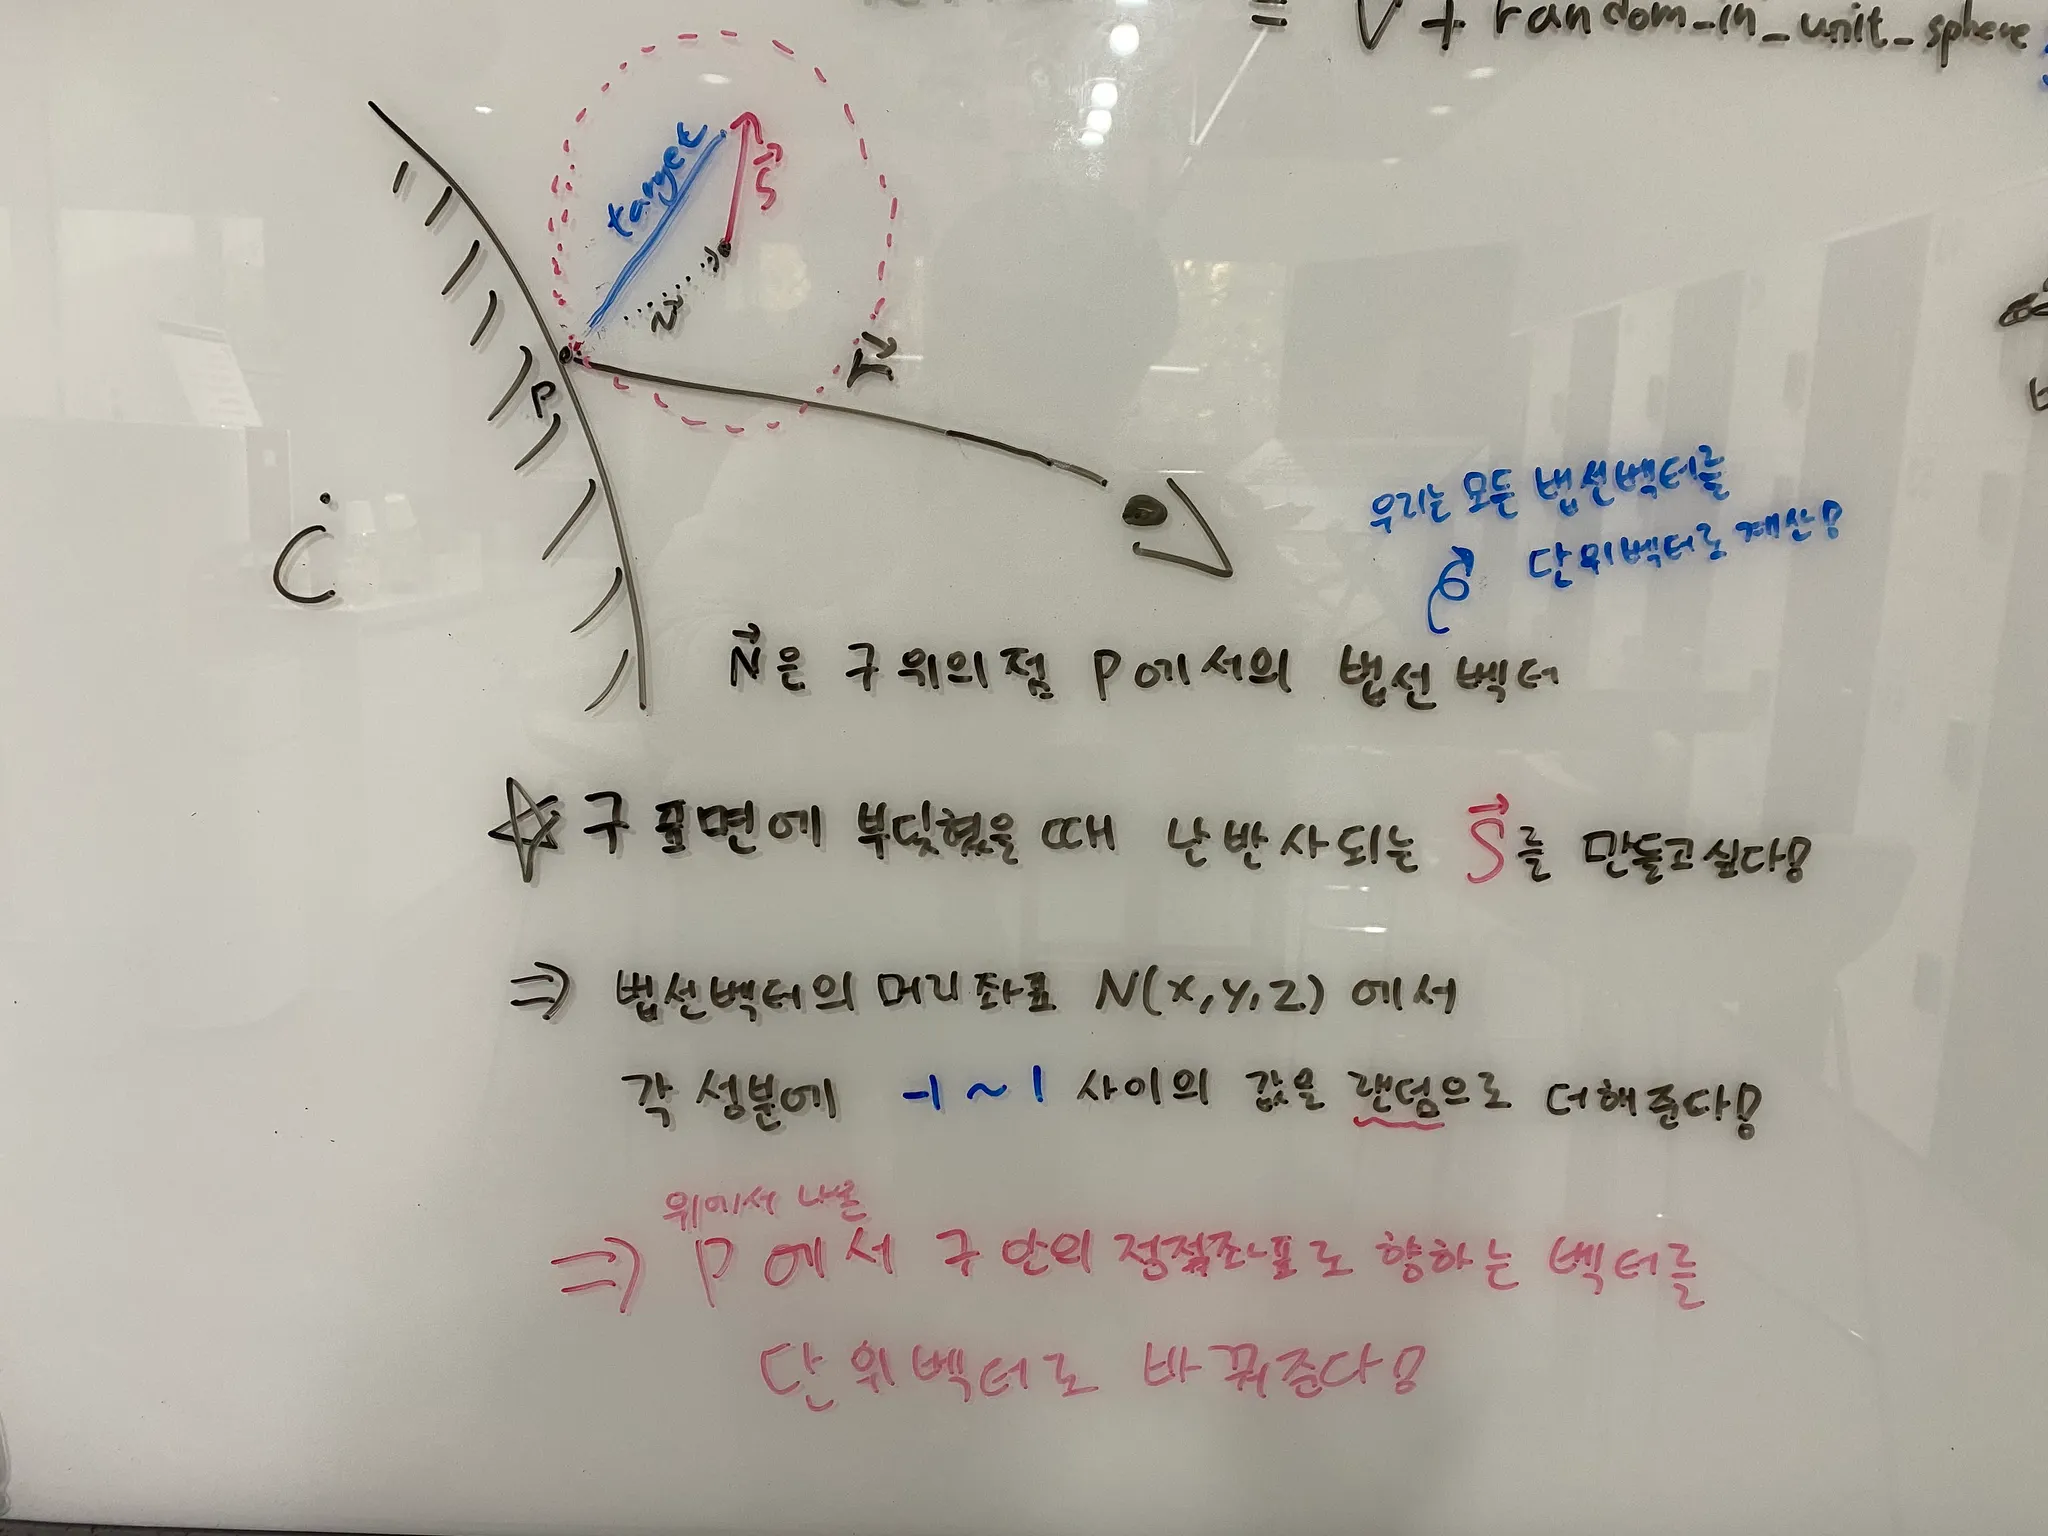 = V + random_in_unit_sphere
target
S
N
r
P
C
우리는 모든 법선벡터를
단위벡터로 계산!
N은 구 위의 점 P에서의 법선 벡터
☆ 구 표면에 부딪혔을 때 난반사되는 S를 만들고싶다!
⇒ 법선벡터의 머리좌표 N(x,y,z) 에서
각 성분에 -1 ~ 1 사이의 값을 랜덤으로 더해준다!
위에서 나온
⇒ P에서 구 안의 정점좌표로 향하는 벡터를
단위벡터로 바꿔준다!